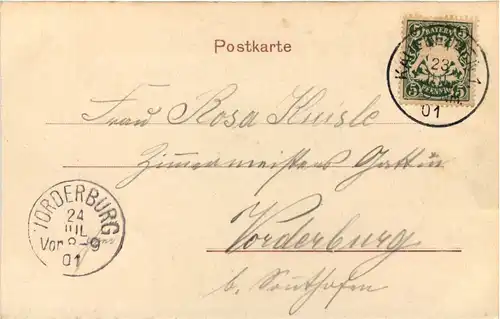 Postkarte
BAYERN
5 5
PFENNIG
23
01
Frau Rosa Kneisle
Zimmermeisters Gattin
Vorderburg
b. Sonthofen
VORDERBURG
24
JUL
Vor 8-9
01